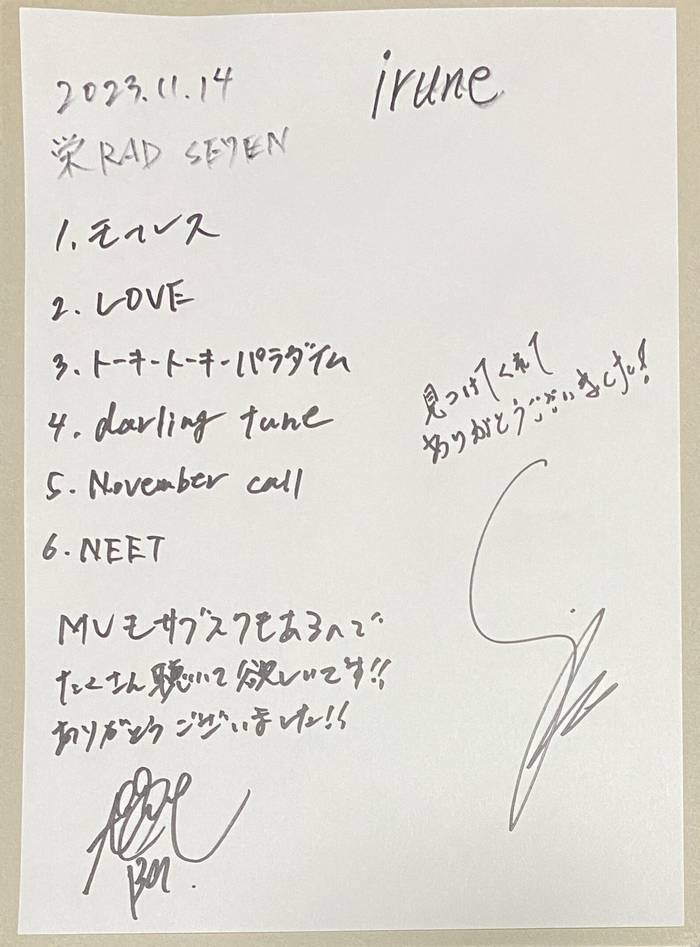 2023.11.14
irune
栄RAD SEVEN
1.
2. LOVE
3. トーキートーキーパラダイム
4. darling tune
5. November call
6. NEET
見つけてくれて
ありがとうございました!
MVもサブスクもあるので
たくさん聴いて欲しいです!!
ありがとうございました!!
Ba.